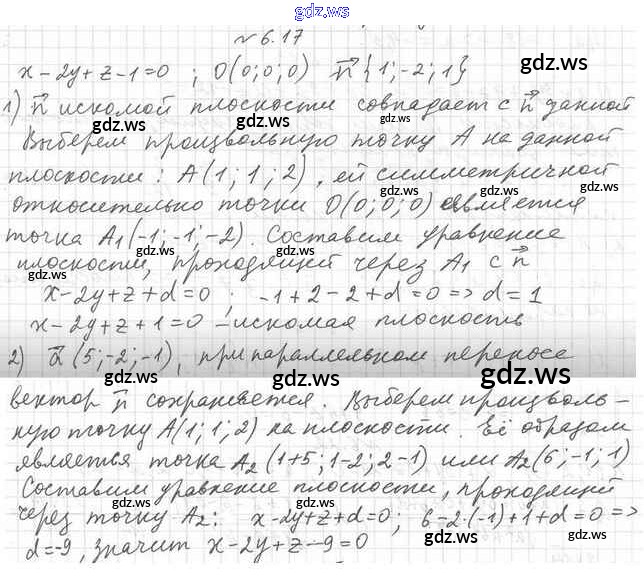 gdz.ws
№6.17
x-2y+z-1=0 ; O(0;0;0) n⃗{1;-2;1} gdz.ws
1) n⃗ искомой плоскости совпадает с n⃗ данной
gdz.ws gdz.ws gdz.ws
Выберем произвольную точку A на данной
плоскости: A(1;1;2), ей симметричной
gdz.ws gdz.ws gdz.ws
относительно точки O(0;0;0) является
точка A₁(-1;-1;-2). Составим уравнение
gdz.ws gdz.ws
плоскости, проходящей через A₁ с n⃗
gdz.ws
x-2y+z+d=0 ; -1+2-2+d=0 => d=1
gdz.ws gdz.ws
x-2y+z+1=0 - искомая плоскость
2) a⃗(5;-2;-1), при параллельном переносе
gdz.ws gdz.ws gdz.ws
вектор n⃗ сохраняется. Выберем произволь-
gdz.ws gdz.ws
ную точку A(1;1;2) на плоскости. Её образом
является точка A₂(1+5;1-2;2-1) или A₂(6;-1;1)
gdz.ws gdz.ws gdz.ws
Составим уравнение плоскости, проходящей
gdz.ws gdz.ws
через точку A₂: x-2y+z+d=0, 6-2·(-1)+1+d=0 =>
d=-9, значит x-2y+z-9=0
gdz.ws gdz.ws gdz.ws